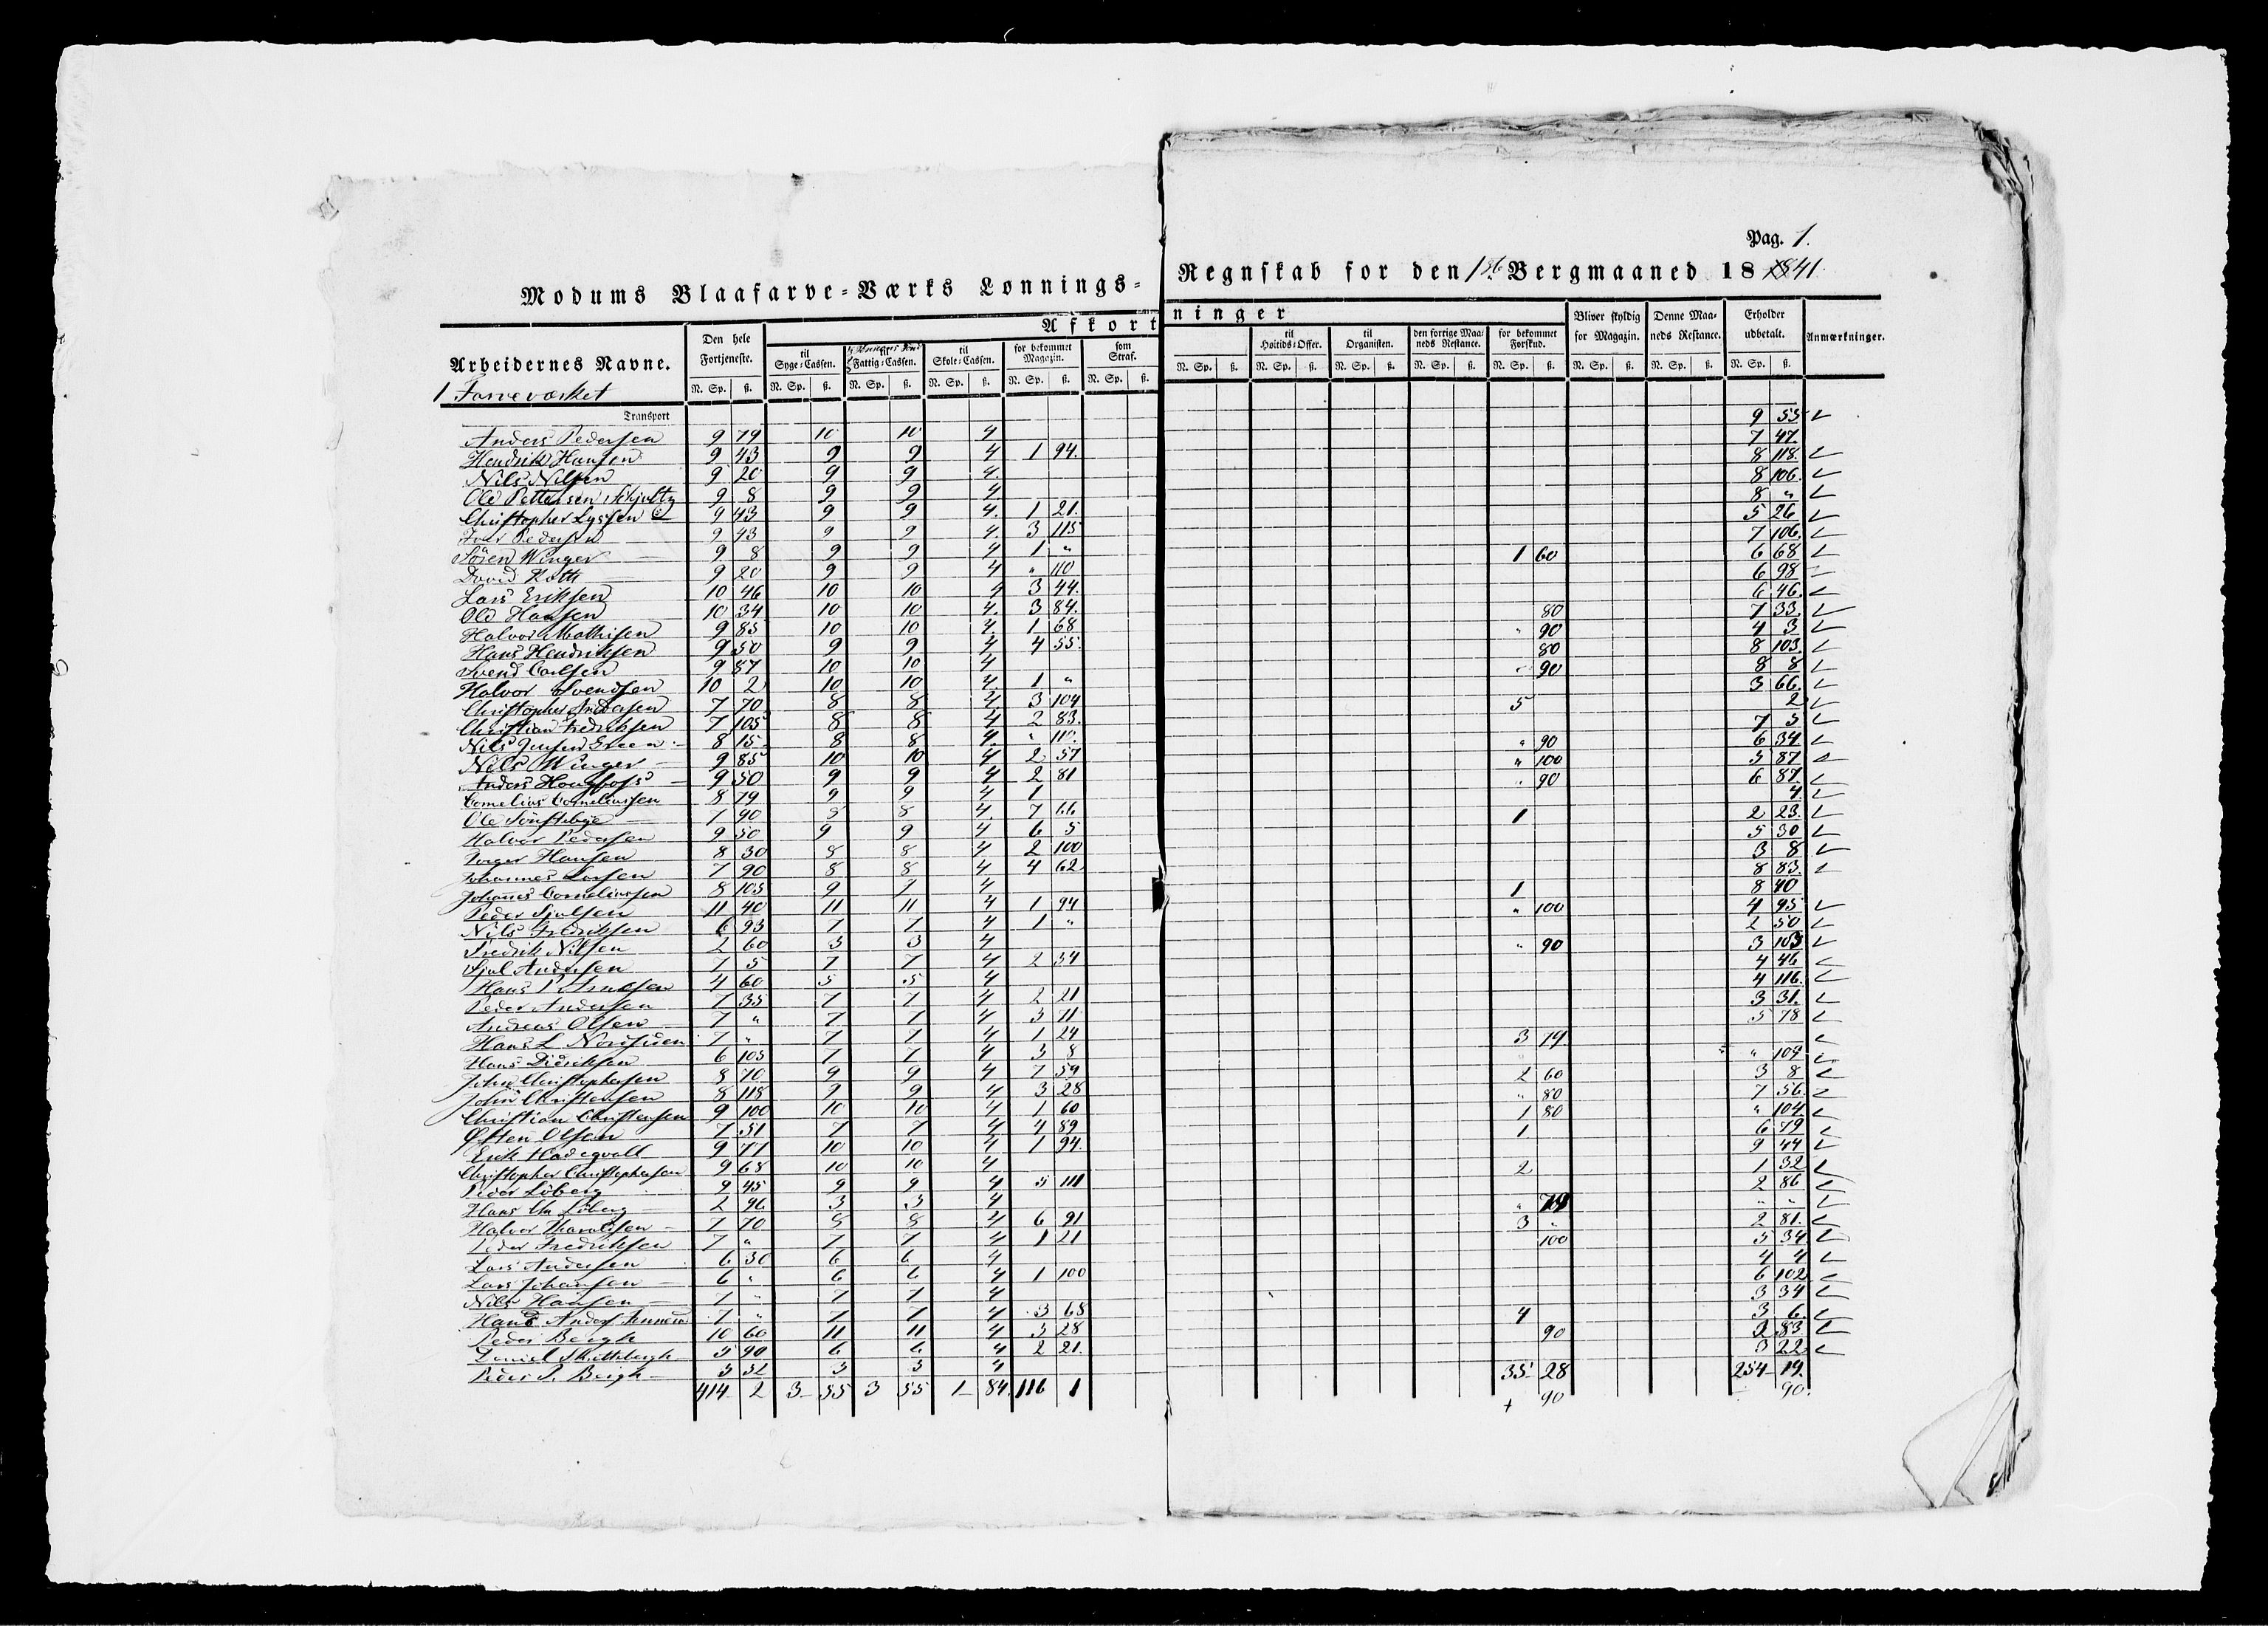 Pag. 1.
Modums Blaafarve-Værks Lønnings-Regnskab for den 1ste Bergmaaned 18 1841.
Afkortninger
Arbeidernes Navne. Den hele Fortjeneste. til Syge-Cassen. til Fattig-Cassen. til Skole-Cassen. for bekommet Magazin. som Straf. til Høitids-Offer. til Organisten. den forrige Maaneds Restance. for bekommet Forskud. Bliver skyldig for Magazin. Denne Maaneds Restance. Erholder udbetalt. Anmærkninger.
N. Sp. ß. N. Sp. ß. N. Sp. ß. N. Sp. ß. N. Sp. ß. N. Sp. ß. N. Sp. ß. N. Sp. ß. N. Sp. ß. N. Sp. ß. N. Sp. ß. N. Sp. ß. N. Sp. ß. N. Sp. ß.
1 Farveværket
Transport
Anders Pedersen 9 79 10 10 4 9 55
Hendrik Hansen 9 43 9 9 4 1 94. 7 47.
Nils Nilsen 9 20 9 9 4. 8 118.
Ole Pettersen 9 8 9 9 4 8 106.
Christopher Lyssen 9 43 9 9 4. 1 21. 8 "
Iver Pedersen 9 43 9 9 4. 3 115 5 26
Søren Winger 9 8 9 9 4 1 " 7 106.
David Roth 9 20 9 9 4 " 110 1 60 6 68
Lars Eriksen 10 46 10 10 4 3 44. 6 98
Ole Hansen 10 34 10 10 4. 3 84. 6 46.
Halvor Mathisen 9 85 10 10 4. 1 68 80 7 33.
Hans Hendriksen 9 50 9 9 4 4 55. " 90 4 3
Svend Carlsen 9 87 10 10 4 80 8 103.
Halvor Svendsen 10 2 10 10 4. 1 " " 90 8 8
Christopher Andersen 7 70 8 8 4. 3 104 3 66.
Christian Fredriksen 7 105 8 8 4 2 83. 5 2
Nils Jensen Green 8 15 8 8 4. " 110. 7 5
Nils Winger 9 85 10 10 4 2 57 " 90 6 34
Anders Hougfoss 9 50 9 9 4 2 81 " 100 5 87
Cornelius Corneliussen 8 79 9 9 4 1 " 90 6 87.
Ole 7 90 8 8 4. 7 66 4.
Halvor Pedersen 9 50 9 9 4 6 5 1 2 23.
Hansen 8 30 8 8 4 2 100 5 30
Johannes Larsen 7 90 8 8 4 4 62 3 8
Johannes Corneliussen 8 105 9 9 4 8 83.
Peder 11 40 11 11 4 1 94 1 8 40
Nils Fredriksen 6 93 7 7 4 1 " " 100 4 95
Fredrik Nilsen 2 60 3 3 4 2 50
Andersen 7 5 7 7 4 2 34 " 90 3 103
Hans 4 60 5 5 4 4 46
Peder Andersen 7 35 7 7 4 2 21 4 116.
Andreas Olsen 7 " 7 7 4 3 71 3 31.
Hans L. 7 " 7 7 4 1 24 5 78
Hans Didriksen 6 105 7 7 4 3 8 3 79
John Christophersen 8 70 9 9 4 7 59 " 109
John Christensen 8 118 9 9 4 3 28 2 60 3 8
Christian Christensen 9 100 10 10 4 1 60 " 80 7 56.
Østen Olsen 7 51 7 7 4 4 89 1 80 " 104.
Erik 9 77 10 10 4 1 94. 1 6 79
Christopher Christophersen 9 68 10 10 4 9 44
Peder Løberg 9 45 9 9 4 5 111 2 1 32
Hans Løberg 2 96 3 3 4 2 86
Halvor Tharaldsen 7 70 8 8 4 6 91 " "
Peder Fredriksen 7 " 7 7 4 1 21 3 " 2 81.
Lars Andersen 6 30 6 6 4 100 5 34
Lars Johansen 6 " 6 6 4 1 100 4 4
Nils Hansen 7 " 7 7 4 6 102
Hans 7 " 7 7 4 3 68 3 34
Peder Bergh 10 60 11 11 4 3 28 4 3 6
Daniel 5 90 6 6 4 2 21. 90 2 83
Peder P. Bergh 3 52 3 3 4 3 22
414 2 3 55 3 55 1 84 116 1 35 28 254 19.
90 90.